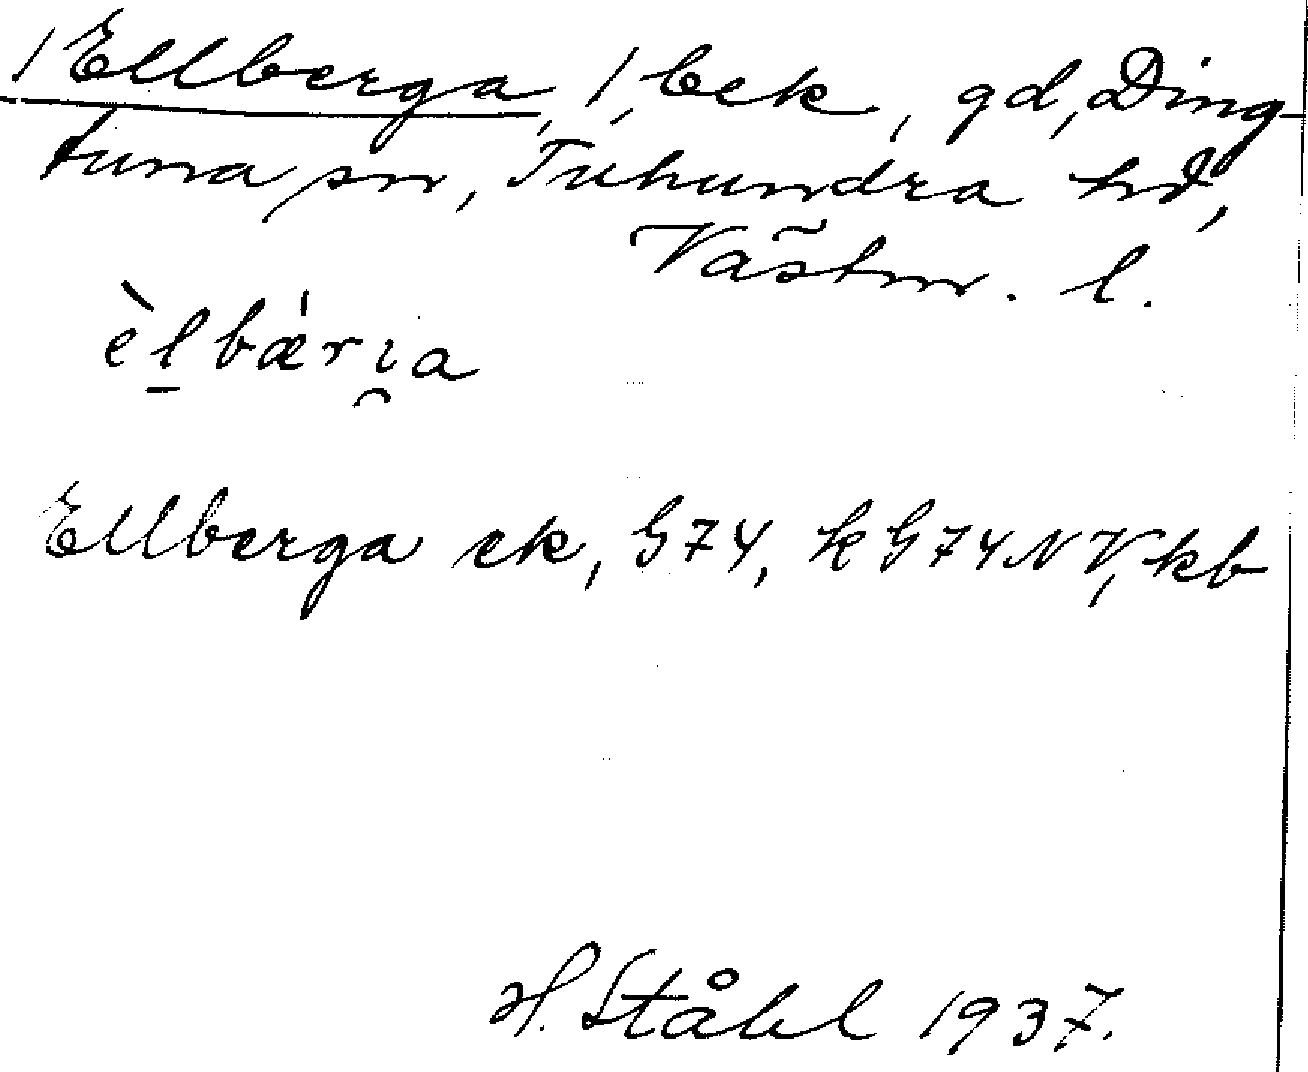 /Ellberga, /, bek, gd, Ding-
tuna sn, Tuhundra hd,
Västm. l.
èl̠bǽrı̯a
Ellberga ek, G74, kG74NV, kb
H. Ståhl 1937.